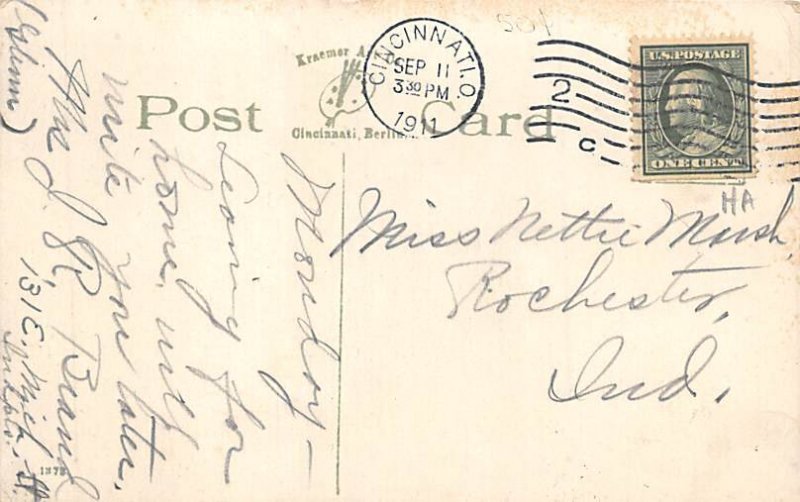 50¢
Kraemer A
Cincinnati, Berlin
Post Card
CINCINNATI. O.
SEP 11
3 30 PM
1911
2
C
U.S. POSTAGE
ONE CENT
HA
Miss Nettie Marsh,
Rochester,
Ind.
Monday —
Leaving for
home, will
write you later,
J. R.
131 E. Mich. St.
Indpls.
1373